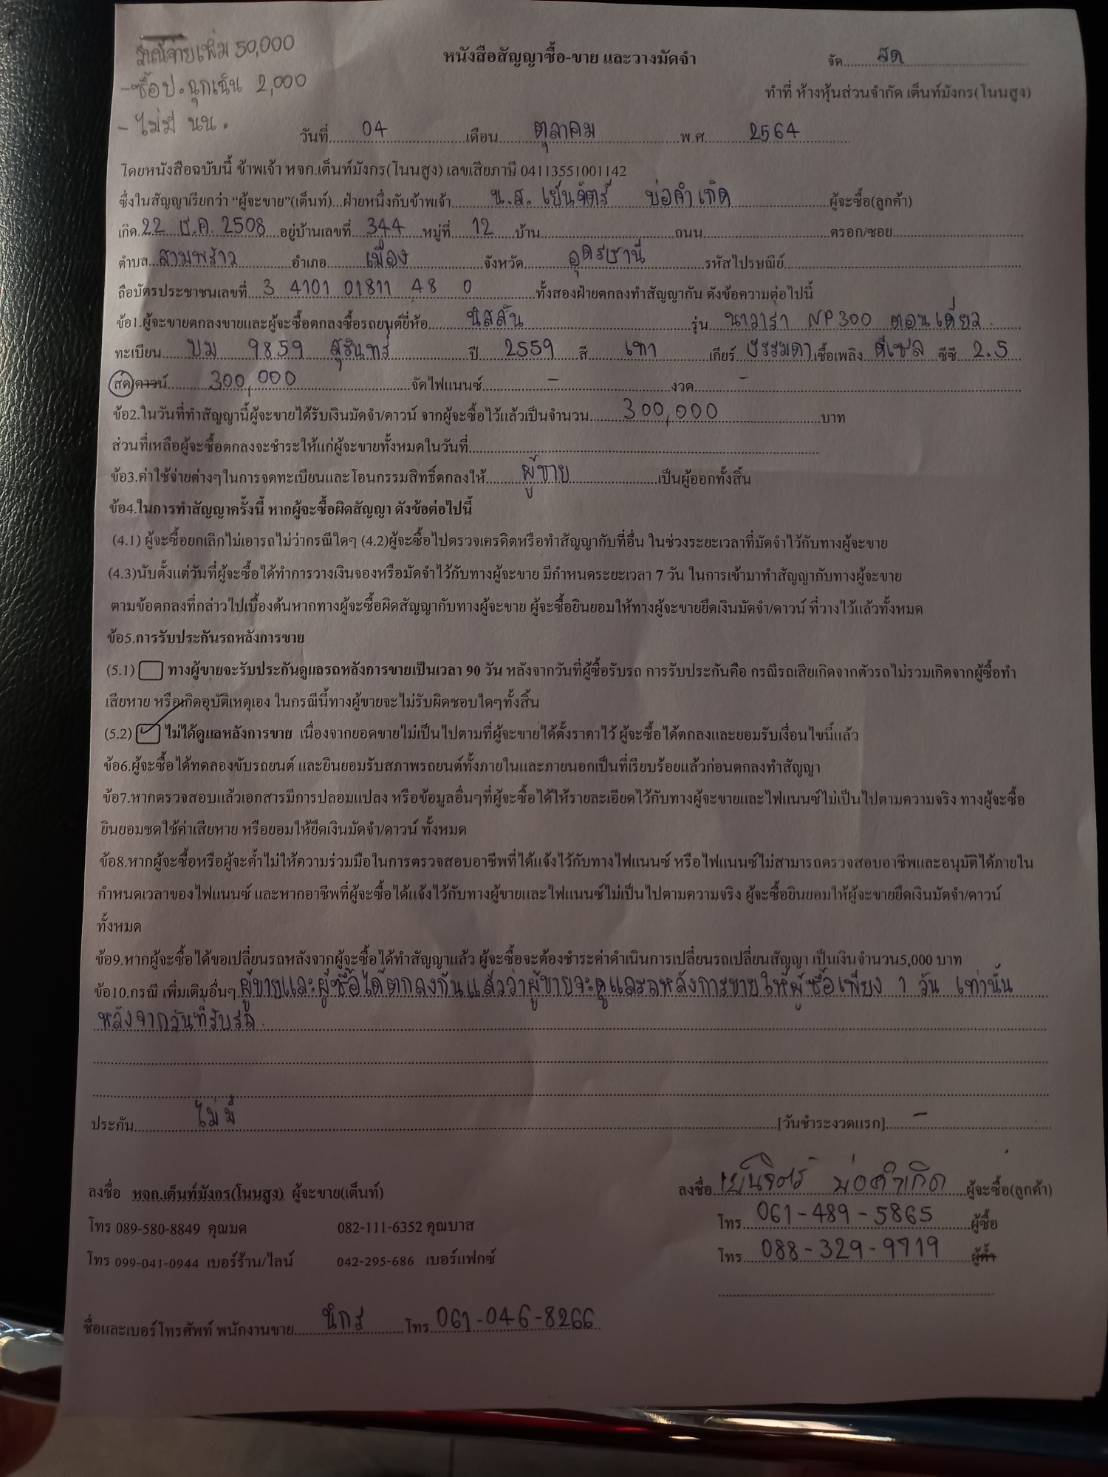 จ่ายเพิ่ม 50,000
- ซื้อ ป. ฉุกเฉิน 2,000
- ไม่มี นน.
หนังสือสัญญาซื้อ-ขาย และวางมัดจำ
จัด สด
ทำที่ ห้างหุ้นส่วนจำกัด เต็นท์มังกร(โนนสูง)
วันที่ 04 เดือน ตุลาคม พ.ศ. 2564
โดยหนังสือฉบับนี้ ข้าพเจ้า หจก.เต็นท์มังกร(โนนสูง) เลขเสียภาษี 04113551001142
ซึ่งในสัญญาเรียกว่า "ผู้จะขาย"(เต็นท์)...ฝ่ายหนึ่งกับข้าพเจ้า น.ส. เย็นจิตร์ บ่อคำเกิด ผู้จะซื้อ(ลูกค้า)
เกิด 22 ธ.ค. 2508 อยู่บ้านเลขที่ 344 หมู่ที่ 12 บ้าน ถนน ตรอก/ซอย
ตำบล สามพร้าว อำเภอ เมือง จังหวัด อุดรธานี รหัสไปรษณีย์
ถือบัตรประชาชนเลขที่ 3 4101 01811 48 0 ทั้งสองฝ่ายตกลงทำสัญญากัน ดังข้อความต่อไปนี้
ข้อ1.ผู้จะขายตกลงขายและผู้จะซื้อตกลงซื้อรถยนต์ยี่ห้อ นิสสัน รุ่น นาวาร่า NP300 ตอนเดียว
ทะเบียน บม 9859 สุรินทร์ ปี 2559 สี เทา เกียร์ ธรรมดา เชื้อเพลิง ดีเซล ซีซี 2.5
สด/ดาวน์ 300,000 จัดไฟแนนซ์ - งวด -
ข้อ2.ในวันที่ทำสัญญานี้ผู้จะขายได้รับเงินมัดจำ/ดาวน์ จากผู้จะซื้อไว้แล้วเป็นจำนวน 300,000 บาท
ส่วนที่เหลือผู้จะซื้อตกลงจะชำระให้แก่ผู้จะขายทั้งหมดในวันที่
ข้อ3.ค่าใช้จ่ายต่างๆในการจดทะเบียนและโอนกรรมสิทธิ์ตกลงให้ ผู้ขาย เป็นผู้ออกทั้งสิ้น
ข้อ4.ในการทำสัญญาครั้งนี้ หากผู้จะซื้อผิดสัญญา ดังข้อต่อไปนี้
(4.1) ผู้จะซื้อยกเลิกไม่เอารถไม่ว่ากรณีใดๆ (4.2)ผู้จะซื้อไปตรวจเครดิตหรือทำสัญญากับที่อื่น ในช่วงระยะเวลาที่มัดจำไว้กับทางผู้จะขาย
(4.3)นับตั้งแต่วันที่ผู้จะซื้อได้ทำการวางเงินจองหรือมัดจำไว้กับทางผู้จะขาย มีกำหนดระยะเวลา 7 วัน ในการเข้ามาทำสัญญากับทางผู้จะขาย
ตามข้อตกลงที่กล่าวไปเบื้องต้นหากทางผู้จะซื้อผิดสัญญากับทางผู้จะขาย ผู้จะซื้อยินยอมให้ทางผู้จะขายยึดเงินมัดจำ/ดาวน์ ที่วางไว้แล้วทั้งหมด
ข้อ5.การรับประกันรถหลังการขาย
(5.1) ทางผู้ขายจะรับประกันดูแลรถหลังการขายเป็นเวลา 90 วัน หลังจากวันที่ผู้ซื้อรับรถ การรับประกันคือ กรณีรถเสียเกิดจากตัวรถไม่รวมเกิดจากผู้ซื้อทำ
เสียหาย หรือเกิดอุบัติเหตุเอง ในกรณีนี้ทางผู้ขายจะไม่รับผิดชอบใดๆทั้งสิ้น
(5.2) ไม่ได้ดูแลหลังการขาย เนื่องจากยอดขายไม่เป็นไปตามที่ผู้จะขายได้ตั้งราคาไว้ ผู้จะซื้อได้ตกลงและยอมรับเงื่อนไขนี้แล้ว
ข้อ6.ผู้จะซื้อได้ทดลองขับรถยนต์ และยินยอมรับสภาพรถยนต์ทั้งภายในและภายนอกเป็นที่เรียบร้อยแล้วก่อนตกลงทำสัญญา
ข้อ7.หากตรวจสอบแล้วเอกสารมีการปลอมแปลง หรือข้อมูลอื่นๆที่ผู้จะซื้อได้ให้รายละเอียดไว้กับทางผู้จะขายและไฟแนนซ์ไม่เป็นไปตามความจริง ทางผู้จะซื้อ
ยินยอมชดใช้ค่าเสียหาย หรือยอมให้ยึดเงินมัดจำ/ดาวน์ ทั้งหมด
ข้อ8.หากผู้จะซื้อหรือผู้จะค้ำไม่ให้ความร่วมมือในการตรวจสอบอาชีพที่ได้แจ้งไว้กับทางไฟแนนซ์ หรือไฟแนนซ์ไม่สามารถตรวจสอบอาชีพและอนุมัติได้ภายใน
กำหนดเวลาของไฟแนนซ์ และหากอาชีพที่ผู้จะซื้อได้แจ้งไว้กับทางผู้ขายและไฟแนนซ์ไม่เป็นไปตามความจริง ผู้จะซื้อยินยอมให้ผู้จะขายยึดเงินมัดจำ/ดาวน์
ทั้งหมด
ข้อ9.หากผู้จะซื้อได้ขอเปลี่ยนรถหลังจากผู้จะซื้อได้ทำสัญญาแล้ว ผู้จะซื้อจะต้องชำระค่าดำเนินการเปลี่ยนรถเปลี่ยนสัญญา เป็นเงินจำนวน5,000 บาท
ข้อ10.กรณี เพิ่มเติมอื่นๆ ผู้ขายและผู้ซื้อได้ตกลงกันแล้วว่าผู้ขายจะดูแลรถหลังการขายให้ผู้ซื้อเพียง 1 วัน เท่านั้น
หลังจากวันที่รับรถ
ประกัน ไม่มี [วันชำระงวดแรก] -
ลงชื่อ หจก.เต็นท์มังกร(โนนสูง) ผู้จะขาย(เต็นท์)
ลงชื่อ เย็นจิตร์ บ่อคำเกิด ผู้จะซื้อ(ลูกค้า)
โทร 089-580-8849 คุณมด 082-111-6352 คุณบาส
โทร 061-489-5865 ผู้ซื้อ
โทร 099-041-0944 เบอร์ร้าน/ไลน์ 042-295-686 เบอร์แฟกซ์
โทร 088-329-9719 ผู้ค้ำ
ชื่อและเบอร์โทรศัพท์ พนักงานขาย นิกร โทร 061-046-8266